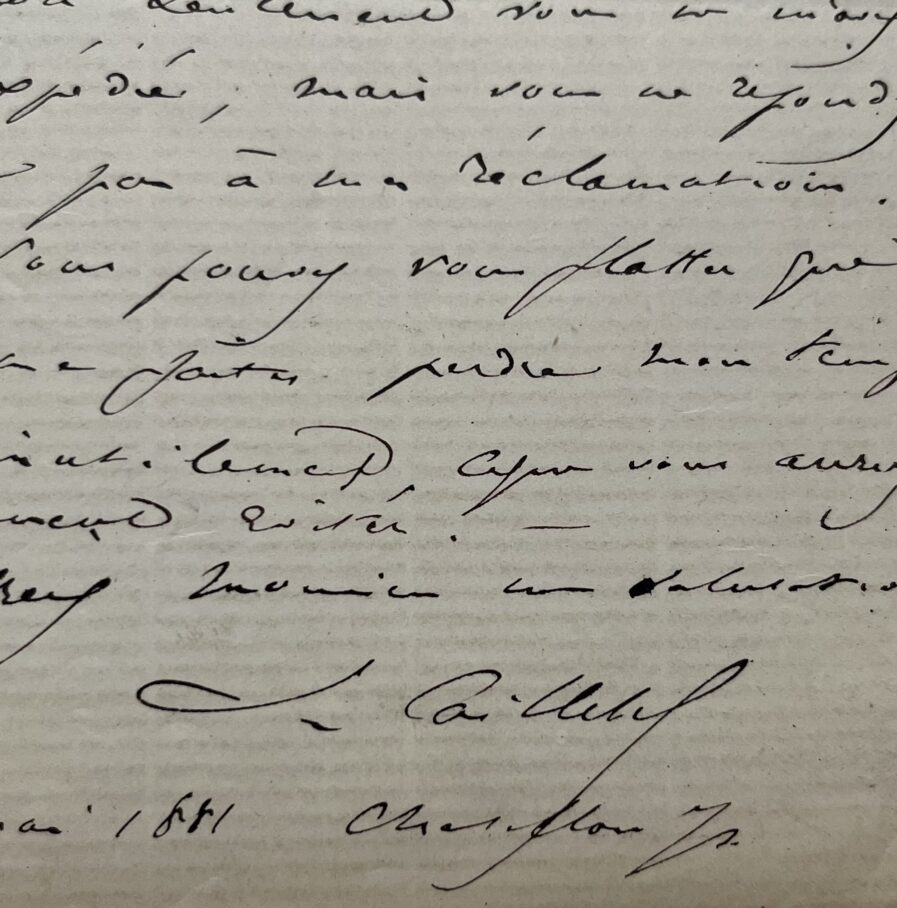 seulement vous ne m'avez
expédié, mais vous ne répondez
pas à mes réclamations.
Vous pouvez vous flatter que
me faites perdre mon temps
inutilement, ce que vous auriez
évité. —
monsieur mes salutations
L Cailletet
mai 1881 Chatillon s/s.